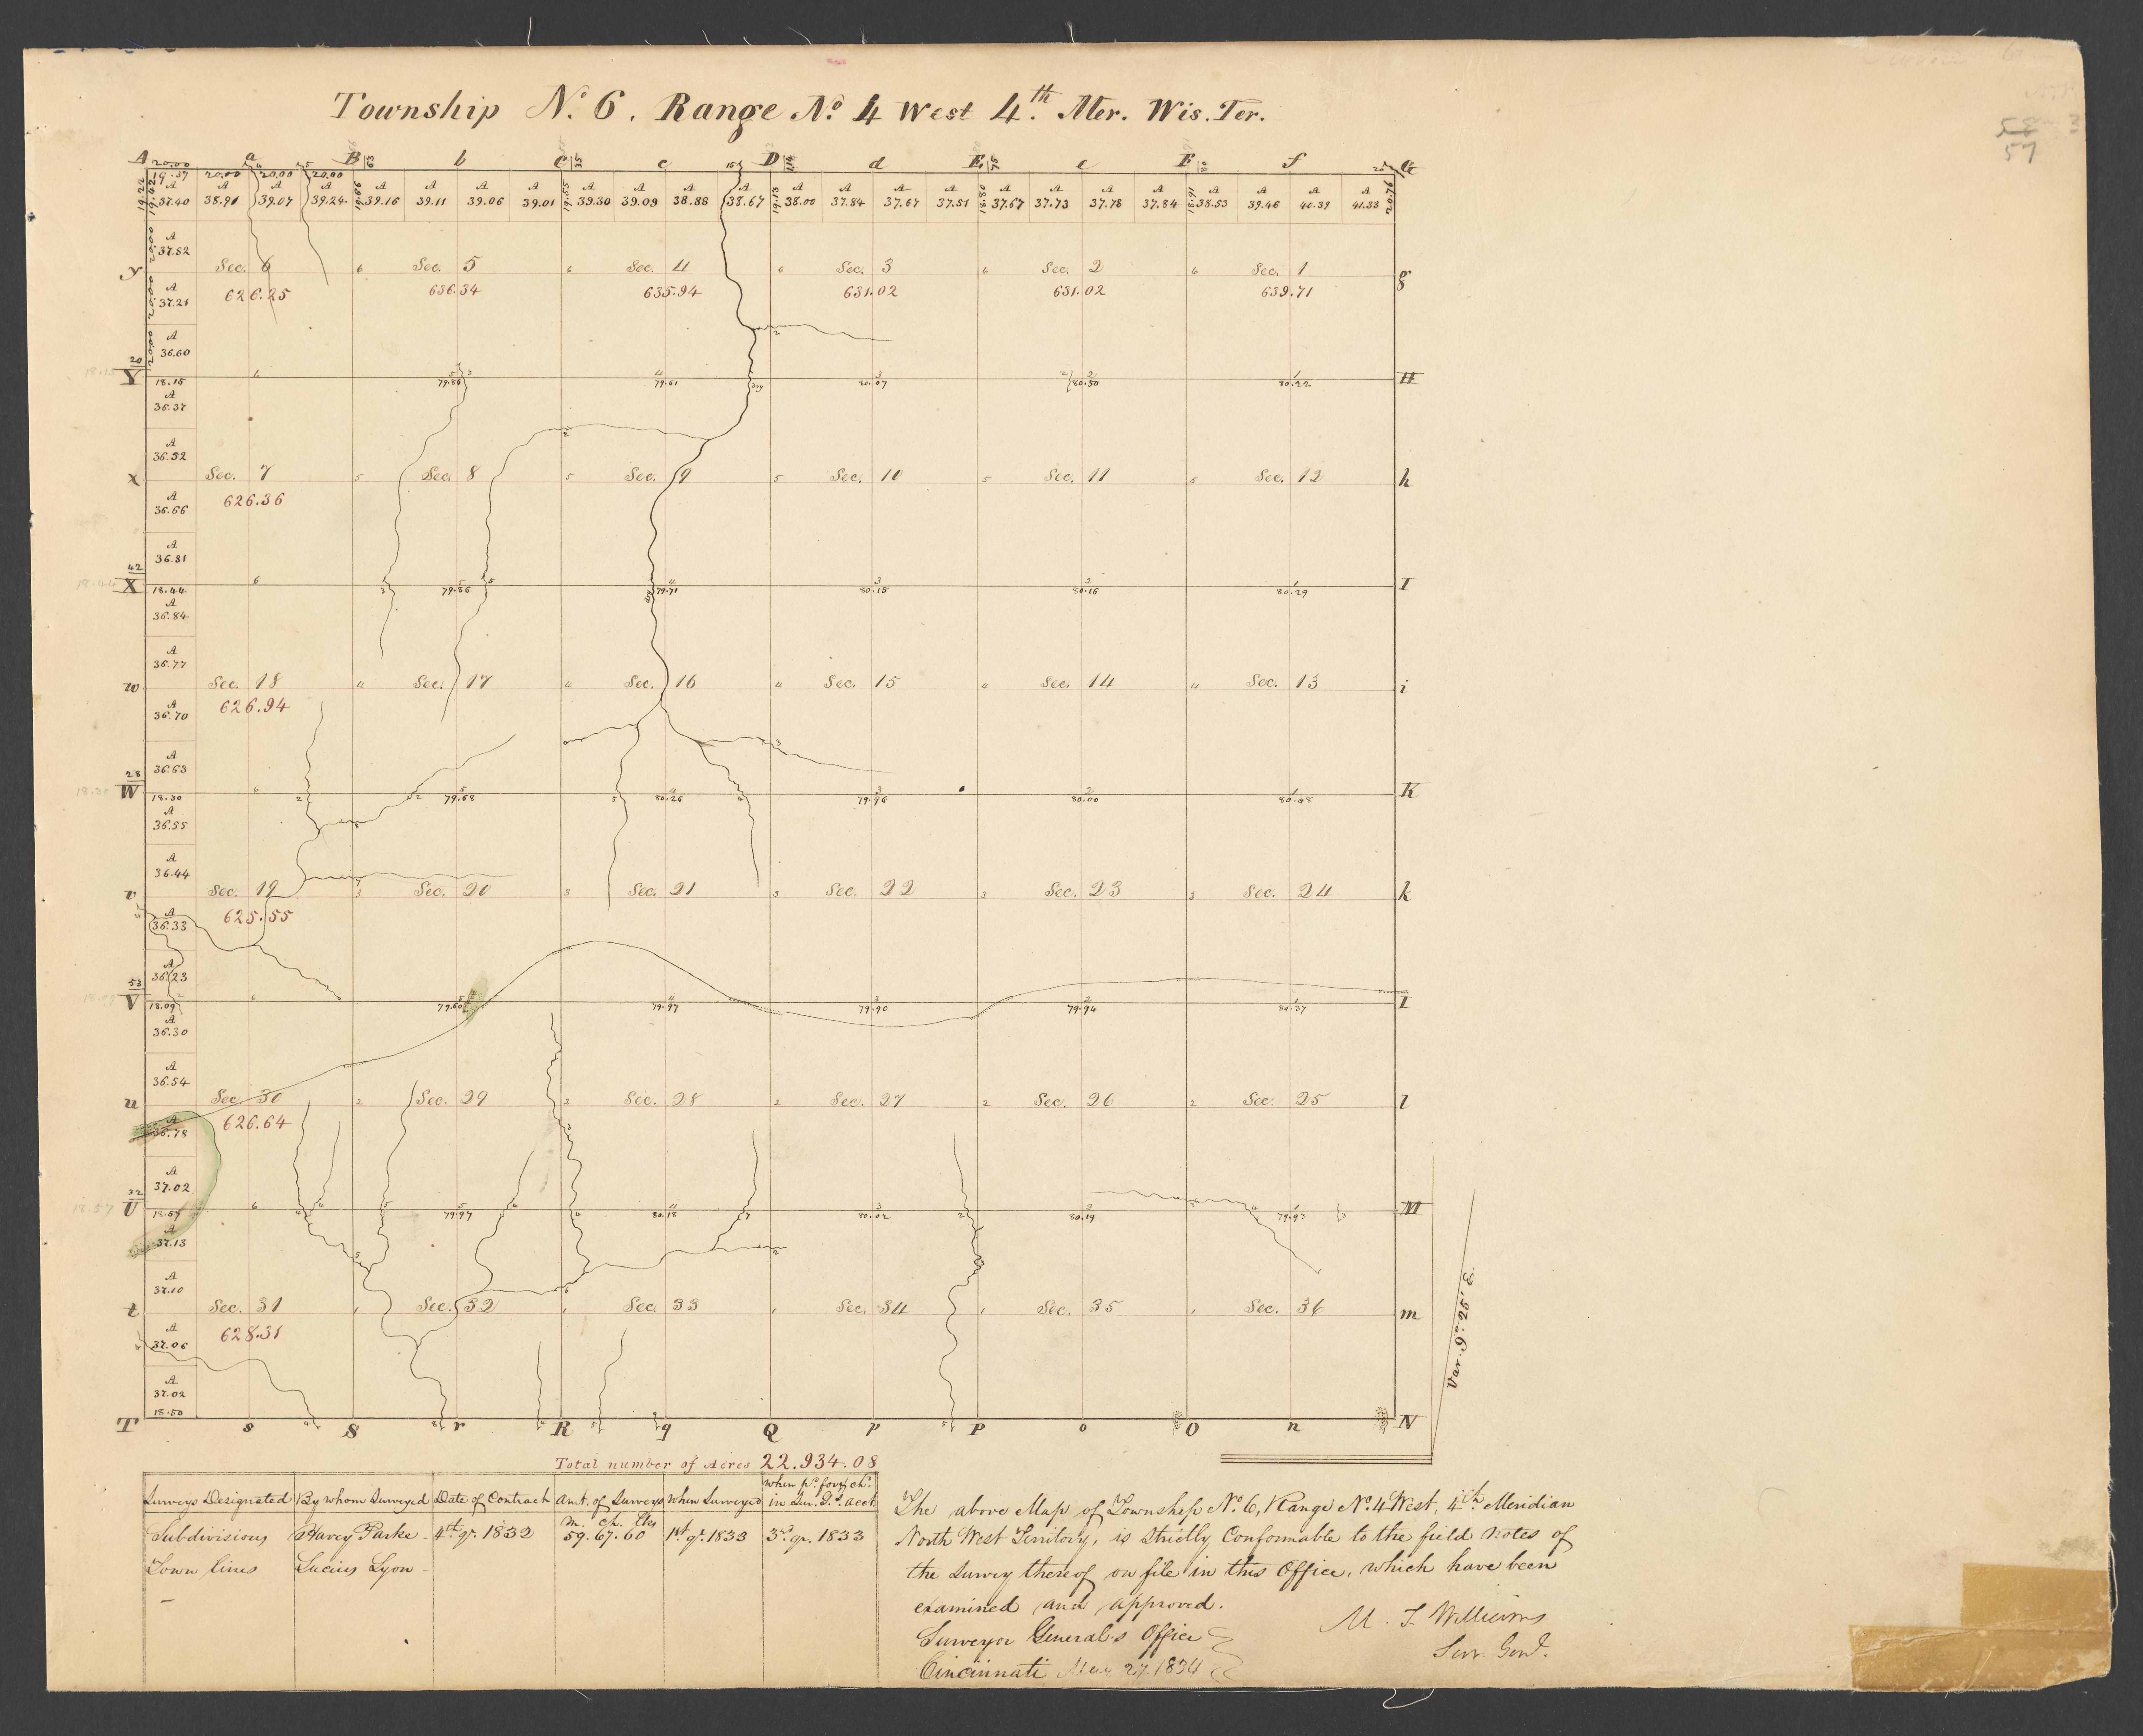 58
57
Township No. 6. Range No. 4 West 4th. Mer. Wis. Ter.
A a B b C c D d E e F f G
20.00 63 35 75
19.37 20.00 20.00 20.00
A A A A A A A A A A A A A A A A A A A A A A A A
37.40 38.91 39.07 39.24 39.16 39.11 39.06 39.01 39.30 39.09 38.88 38.67 38.00 37.84 37.67 37.51 37.67 37.73 37.78 37.84 38.53 39.46 40.39 41.33
A
37.82
y Sec. 6 6 Sec. 5 6 Sec. 4 6 Sec. 3 6 Sec. 2 6 Sec. 1 g
A
37.21 626.25 636.34 635.94 631.02 631.02 639.71
A
36.60
Y 18.15 6 79.86 79.61 80.07 80.50 80.22 H
A
36.37
A
36.52
x Sec. 7 5 Sec. 8 5 Sec. 9 5 Sec. 10 5 Sec. 11 5 Sec. 12 h
A
36.66 626.36
A
36.81
42
X 18.44 6 79.86 79.71 80.15 80.16 80.29 I
A
36.84
A
36.77
w Sec. 18 4 Sec. 17 4 Sec. 16 4 Sec. 15 4 Sec. 14 4 Sec. 13 i
A
36.70 626.94
A
36.63
28
W 18.30 6 79.68 80.26 79.96 80.00 80.48 K
A
36.55
A
36.44
v Sec. 19 3 Sec. 20 3 Sec. 21 3 Sec. 22 3 Sec. 23 3 Sec. 24 k
A
36.33 625.55
A
36.23
53
V 18.09 6 79.60 79.97 79.90 79.94 80.37 I
A
36.30
A
36.54
u Sec. 30 2 Sec. 29 2 Sec. 28 2 Sec. 27 2 Sec. 26 2 Sec. 25 l
A
36.78 626.64
A
37.02
32
U 18.57 6 79.97 80.18 80.02 80.19 79.93 M
A
37.13
A
37.10
t Sec. 31 1 Sec. 32 1 Sec. 33 1 Sec. 34 1 Sec. 35 1 Sec. 36 m
A
37.06 628.31
A
37.02
18.50
T s S r R q Q p P o O n N
Var. 9°. 25'. E.
Total number of Acres 22.934.08
Surveys Designated By whom Surveyed Date of Contract Amt. of Surveys When Surveyed When pd. for & chd. in Sur. Gl. Acct.
M. Ch. Lks
Subdivisions Harvey Parke 4th qr. 1832 59.67.60 1st qr. 1833 3rd qr. 1833
Town lines Lucius Lyon
The above Map of Township No. 6, Range No. 4 West, 4th. Meridian
North West Territory, is Strictly Conformable to the field notes of
the Survey thereof on file in this Office, which have been
examined and approved.
Surveyor General's Office
Cincinnati May 27. 1834
M. T. Williams
Sur. Genl.